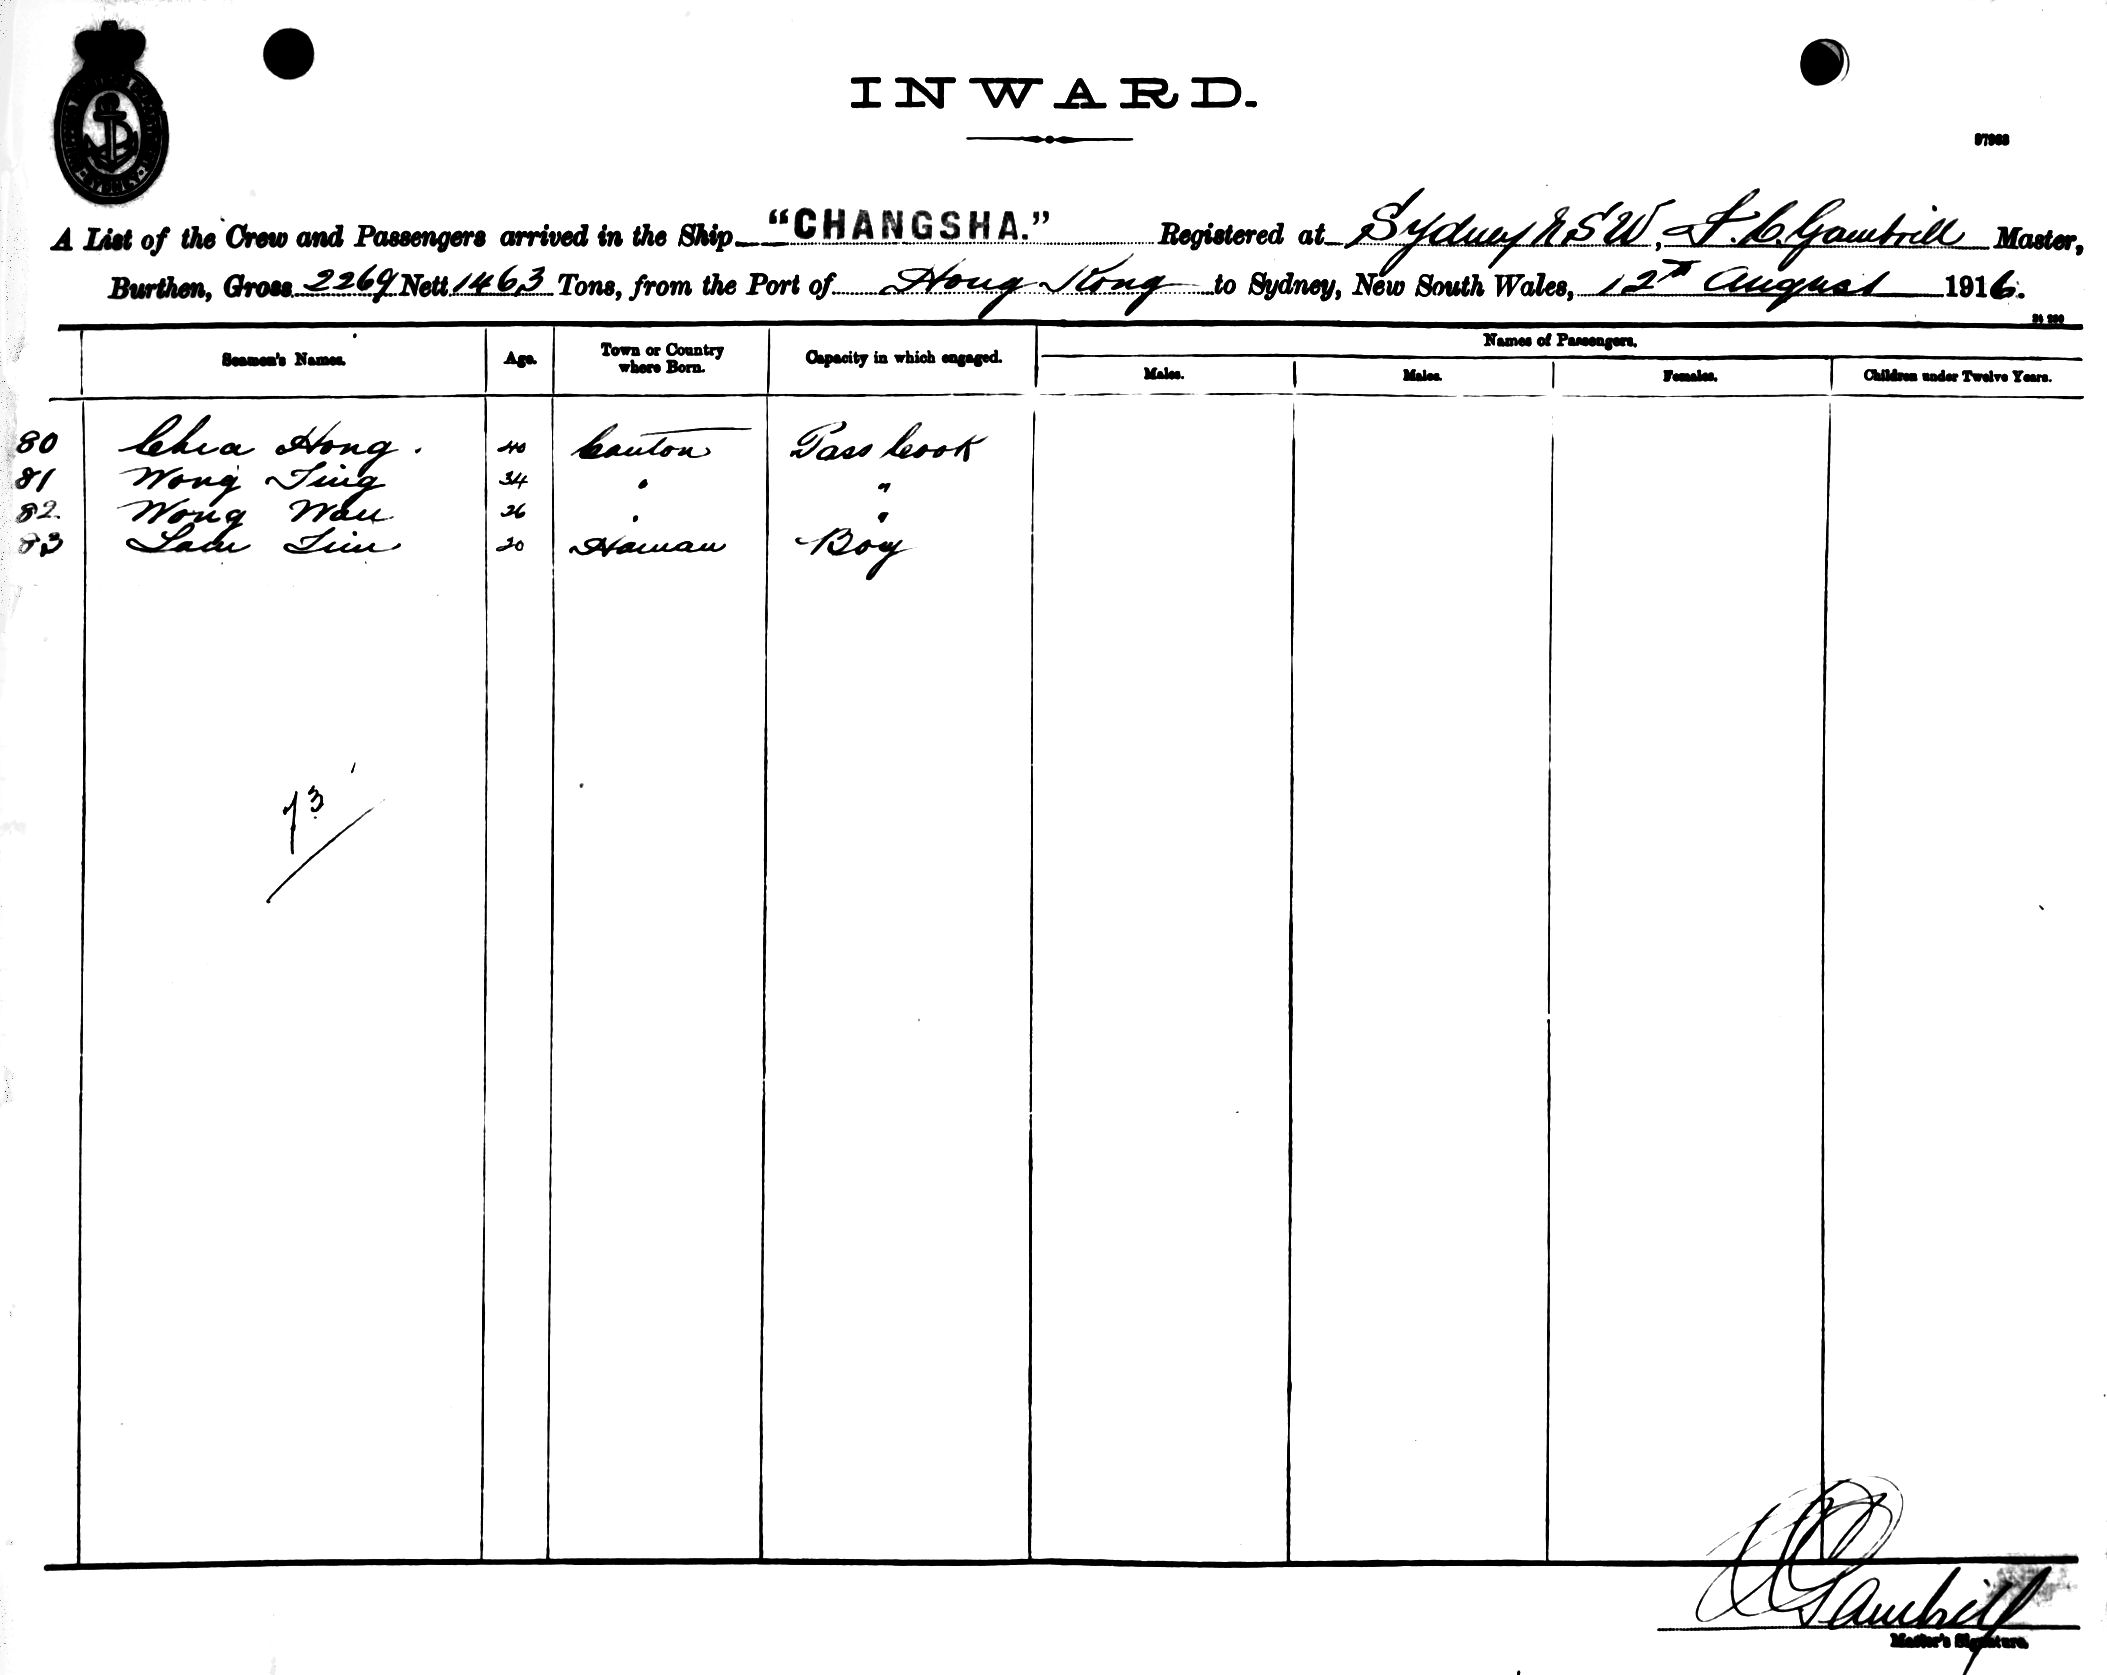 INWARD.
97963
A List of the Crew and Passengers arrived in the Ship "CHANGSHA." Registered at Sydney NSW, F. C. Gambrill Master,
Burthen, Gross 2269 Nett 1463 Tons, from the Port of Hong Kong to Sydney, New South Wales, 12th August 1916.
Names of Passengers.
Seamen's Names. Age. Town or Country where Born. Capacity in which engaged. Males. Males. Females. Children under Twelve Years.
80 Chea Hong. 40 Canton Pass Cook
81 Wong Ting 34 " "
82 Wong Wau 26 " "
83 Lam Tim 20 Hainan Boy
73
Gambrill
Master's Signature.
SYDNEY